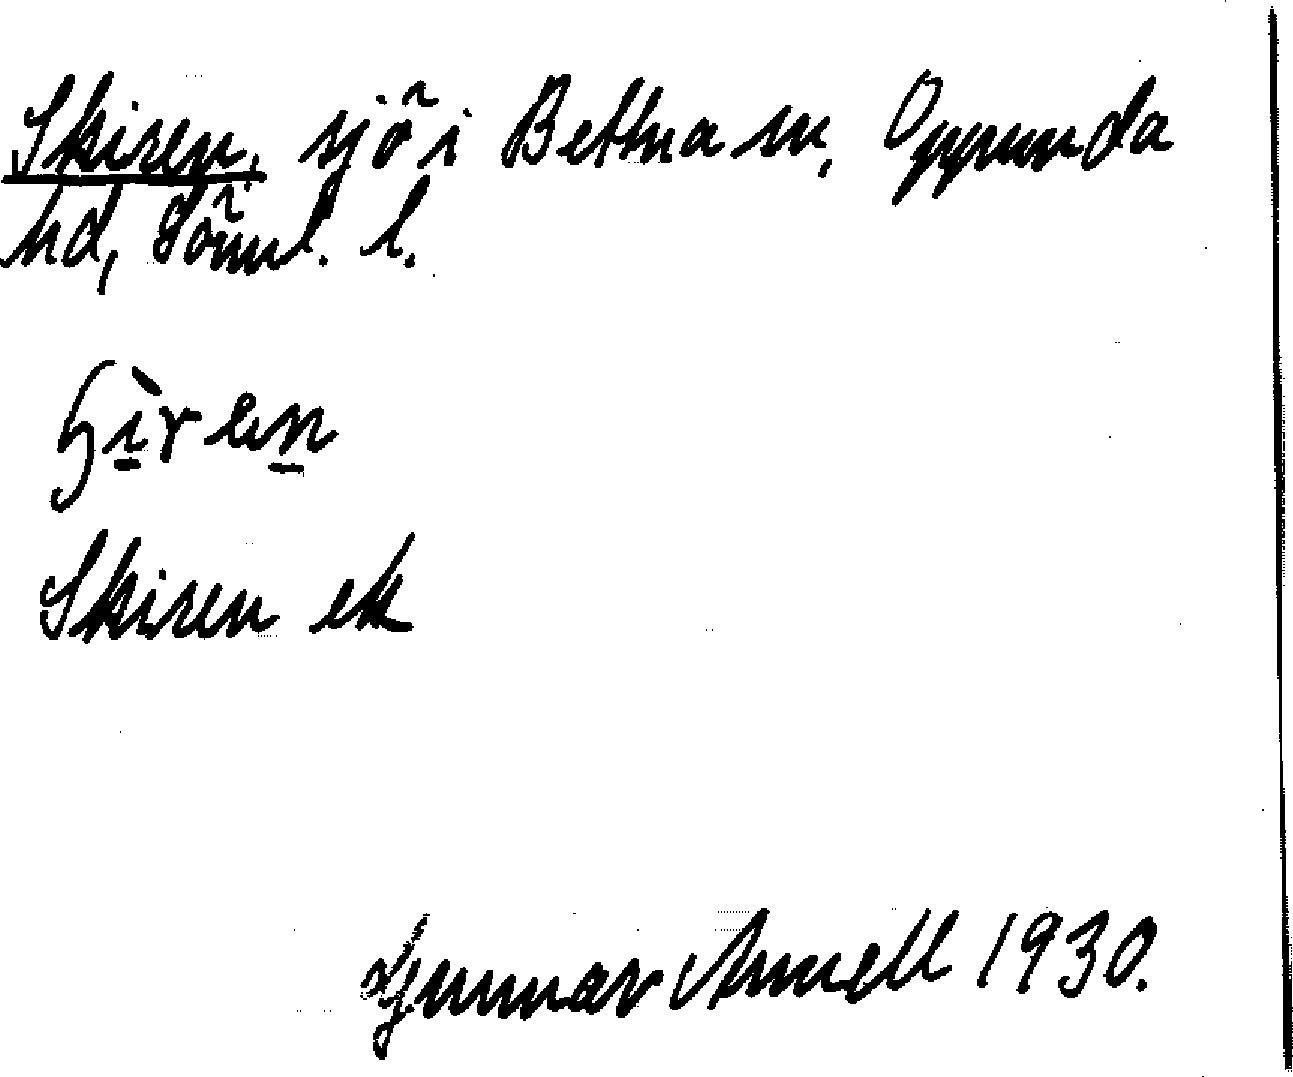 Skiren, sjö i Bettna sn, Oppunda
hd, Söml. l.
Skiren ek
Gunnar Amnell 1930.